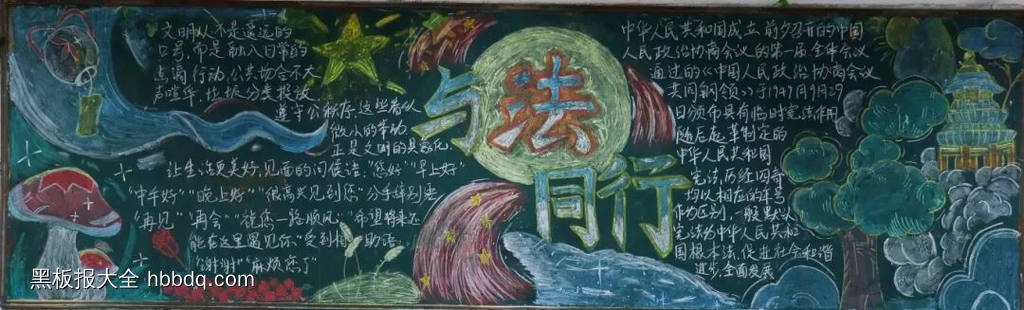 文明从不是遥远的
口号,而是融入日常的
点滴行动,公共场合不大
声喧哗,垃圾分类投放
遵守公共秩序,这些看似
微小的举动
正是文明的具象化
让生活更美好,见面的问候语:“您好”“早上好”
“中午好”“晚上好”“很高兴见到您”分手辞别是
“再见”“再会”“祝您一路顺风”“希望将来还
能在这里遇见你”受到相助语
“谢谢”“麻烦您了”
与法
同行
中华人民共和国成立前夕召开的中国
人民政治协商会议的第一届全体会议
通过的《中国人民政治协商会议
共同纲领》于1949年9月29
日颁布具有临时宪法作用
随后起草制定的
中华人民共和国
宪法,历经四部
均以相应的年号
作为区别,一般默认
宪法为中华人民共和
国根本法,促进社会和谐
进步,全面发展
黑板报大全 hbbdq.com